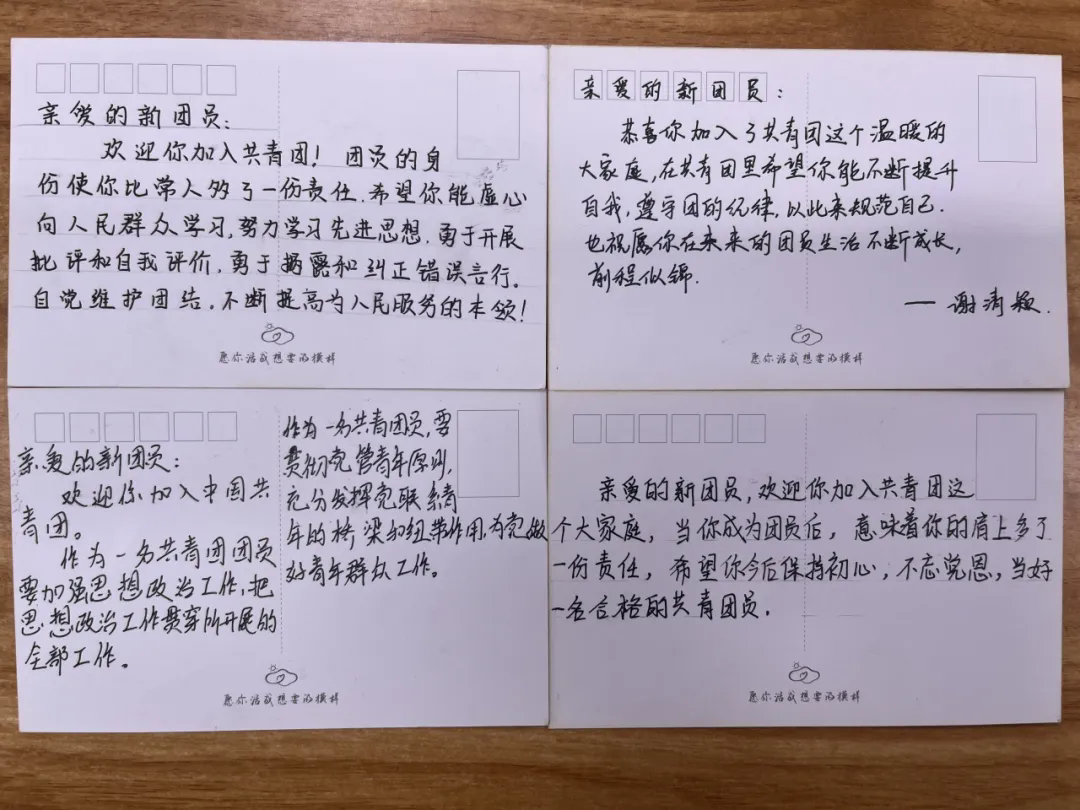 亲爱的新团员：
欢迎你加入共青团！团员的身
份使你比常人多了一份责任.希望你能虚心
向人民群众学习,努力学习先进思想.勇于开展
批评和自我评价,勇于揭露和纠正错误言行.
自觉维护团结.不断提高为人民服务的本领！
愿你活成想要的模样
亲爱的新团员：
恭喜你加入了共青团这个温暖的
大家庭,在共青团里希望你能不断提升
自我,遵守团的纪律,以此来规范自己.
也祝愿你在未来的团员生活不断成长,
前程似锦.
— 谢清颖.
愿你活成想要的模样
亲爱的新团员：
欢迎你加入中国共
青团。
作为一名共青团团员
要加强思想政治工作,把
思想政治工作贯穿所开展的
全部工作。
作为一名共青团员,要
贯彻党管青年原则,
充分发挥党联系青
年的桥梁和纽带作用,为党做
好青年群众工作。
愿你活成想要的模样
亲爱的新团员,欢迎你加入共青团这
个大家庭，当你成为团员后，意味着你的肩上多了
一份责任，希望你今后保持初心,不忘党恩,当好
一名合格的共青团员.
愿你活成想要的模样